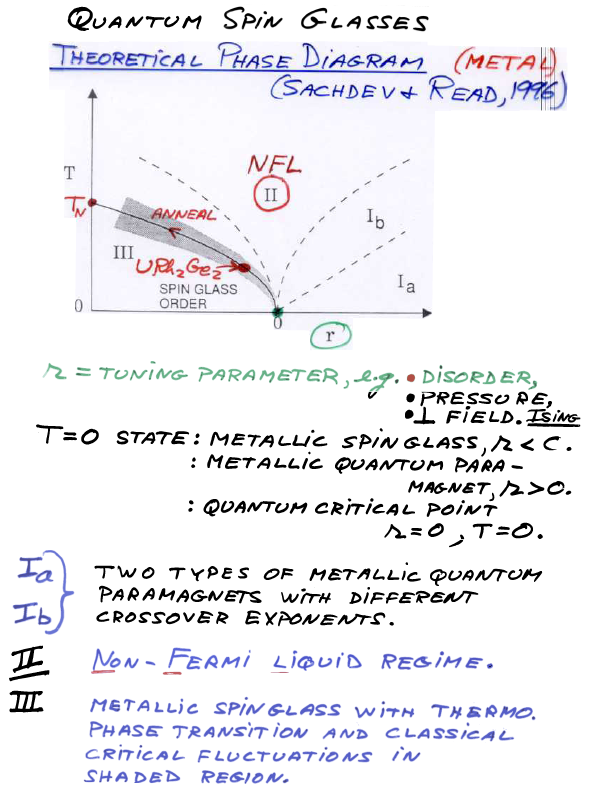 QUANTUM SPIN GLASSES
THEORETICAL PHASE DIAGRAM (METAL)
(SACHDEV & READ, 1996)
T
NFL
II
T_N
ANNEAL
I_b
III
URh₂Ge₂
I_a
SPIN GLASS
ORDER
0
0
r
r = TUNING PARAMETER, e.g. • DISORDER,
• PRESSURE,
• ⊥ FIELD. ISING
T=0 STATE : METALLIC SPIN GLASS, r < C.
: METALLIC QUANTUM PARA-
MAGNET, r>0.
: QUANTUM CRITICAL POINT
r=0, T=0.
Ia
Ib
TWO TYPES OF METALLIC QUANTUM
PARAMAGNETS WITH DIFFERENT
CROSSOVER EXPONENTS.
II NON-FERMI LIQUID REGIME.
III METALLIC SPIN GLASS WITH THERMO.
PHASE TRANSITION AND CLASSICAL
CRITICAL FLUCTUATIONS IN
SHADED REGION.